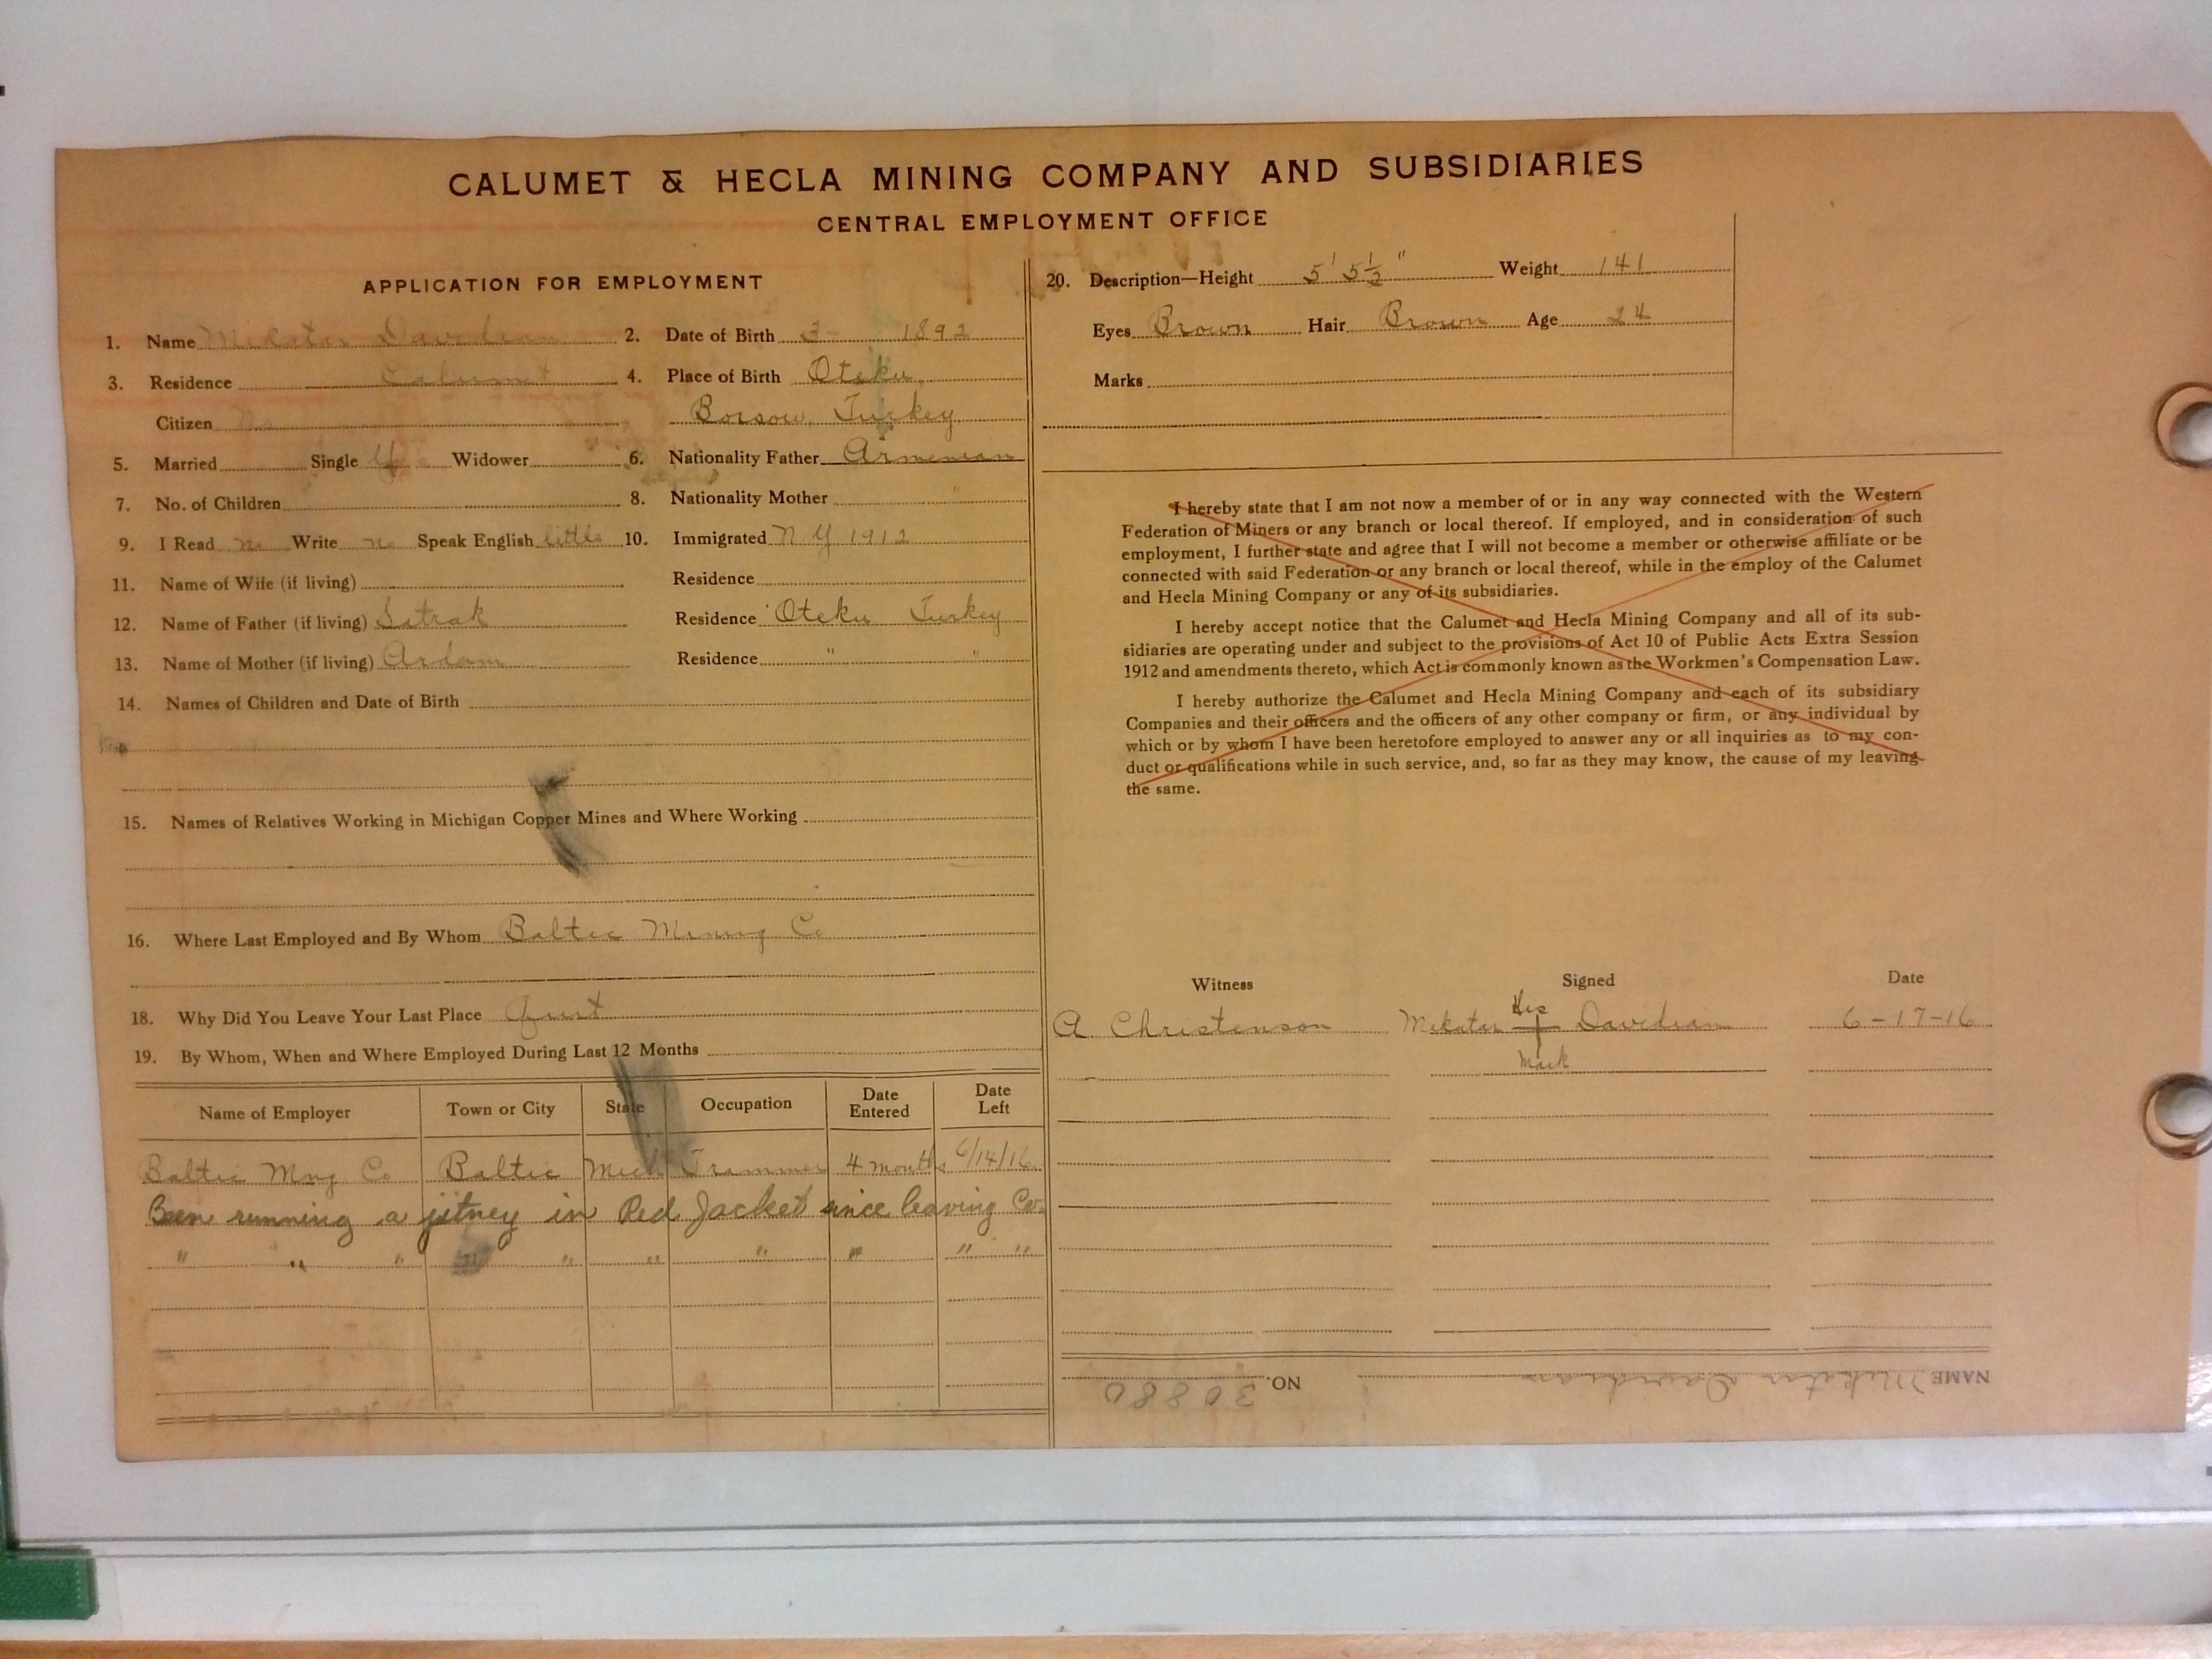 CALUMET & HECLA MINING COMPANY AND SUBSIDIARIES
CENTRAL EMPLOYMENT OFFICE
APPLICATION FOR EMPLOYMENT
1. Name Mikatar Davidian 2. Date of Birth 3 - 1892
3. Residence Calumet 4. Place of Birth Oteku,
Citizen No Borsow, Turkey
5. Married Single Y Widower 6. Nationality Father Armenian
7. No. of Children 8. Nationality Mother "
9. I Read no Write no Speak English little 10. Immigrated N Y 1912
11. Name of Wife (if living) Residence
12. Name of Father (if living) Satrak Residence Oteku Turkey
13. Name of Mother (if living) Ardam Residence " "
14. Names of Children and Date of Birth
15. Names of Relatives Working in Michigan Copper Mines and Where Working
16. Where Last Employed and By Whom Baltic Mining Co
18. Why Did You Leave Your Last Place Quit
19. By Whom, When and Where Employed During Last 12 Months
Name of Employer Town or City State Occupation Date Entered Date Left
Baltic Mng Co Baltic Mich Trammer 4 months 6/14/16
Been running a jitney in Red Jacket since leaving Co.
" " " " " " " " " "
20. Description—Height 5' 5½" Weight 141
Eyes Brown Hair Brown Age 24
Marks
I hereby state that I am not now a member of or in any way connected with the Western
Federation of Miners or any branch or local thereof. If employed, and in consideration of such
employment, I further state and agree that I will not become a member or otherwise affiliate or be
connected with said Federation or any branch or local thereof, while in the employ of the Calumet
and Hecla Mining Company or any of its subsidiaries.
I hereby accept notice that the Calumet and Hecla Mining Company and all of its sub-
sidiaries are operating under and subject to the provisions of Act 10 of Public Acts Extra Session
1912 and amendments thereto, which Act is commonly known as the Workmen's Compensation Law.
I hereby authorize the Calumet and Hecla Mining Company and each of its subsidiary
Companies and their officers and the officers of any other company or firm, or any individual by
which or by whom I have been heretofore employed to answer any or all inquiries as to my con-
duct or qualifications while in such service, and, so far as they may know, the cause of my leaving
the same.
Witness Signed Date
His
A Christenson Mikatar + Davidian 6-17-16
Mark
NAME Mikatar Davidian NO. 30880